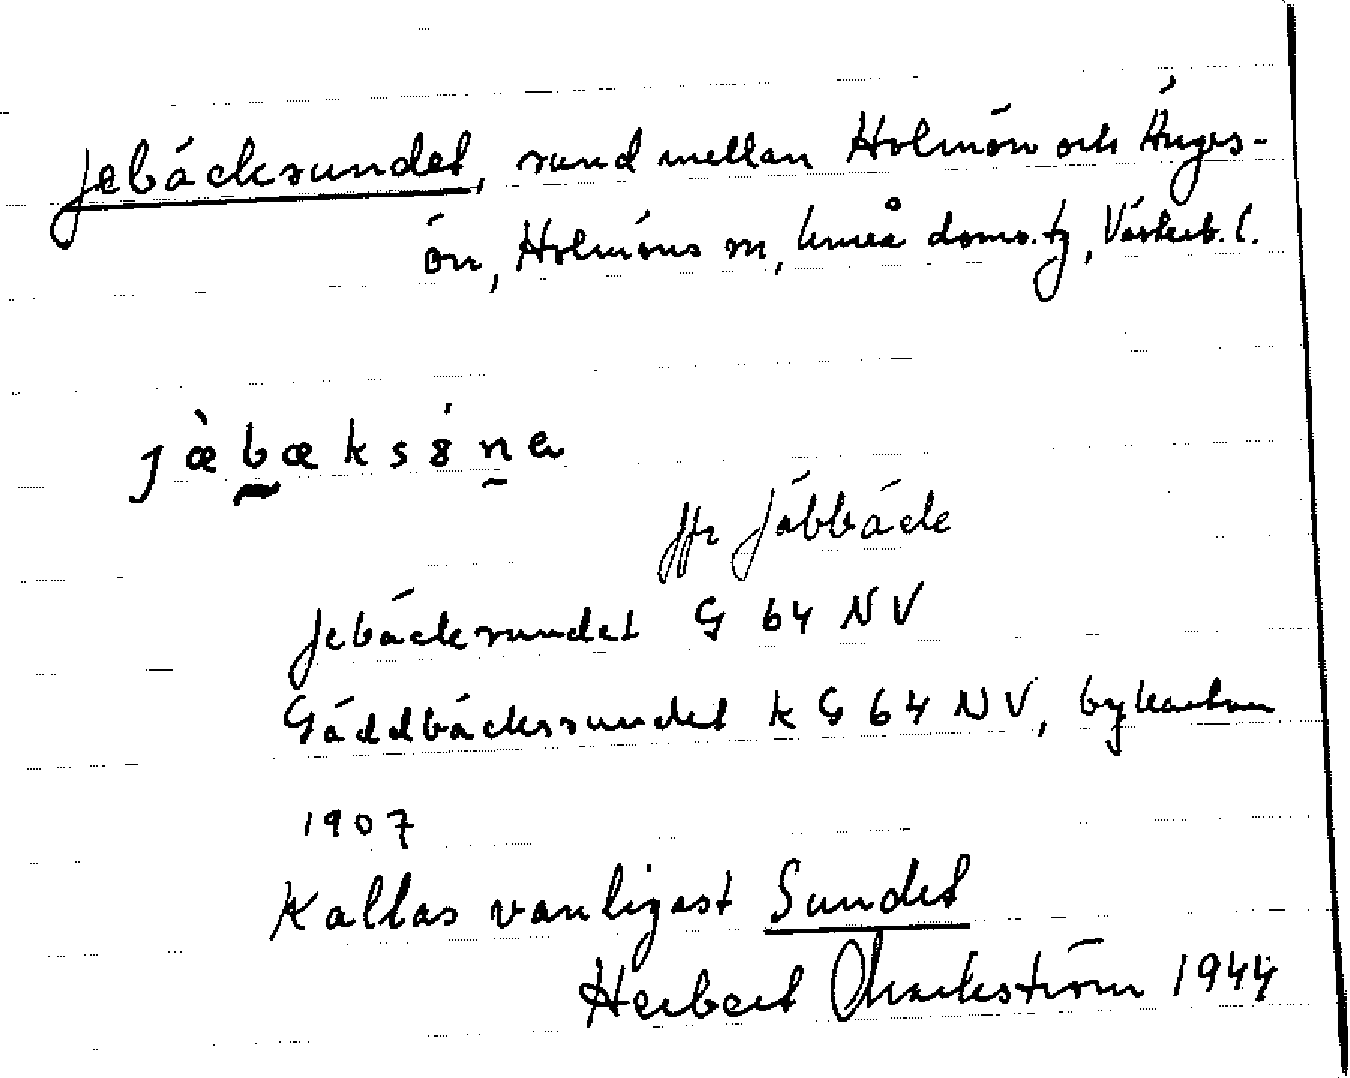 Jebäcksundet, sund mellan Holmön och Änges-
ön, Holmöns sn, Umeå doms.tg, Västerb. l.
jæ̀bæksȣ́ne
Jfr Jäbbäck
Jebäcksundet G 64 NV
Gäddbäckssundet k G 64 NV, bykartan
1907
Kallas vanligast Sundet
Herbert 1944